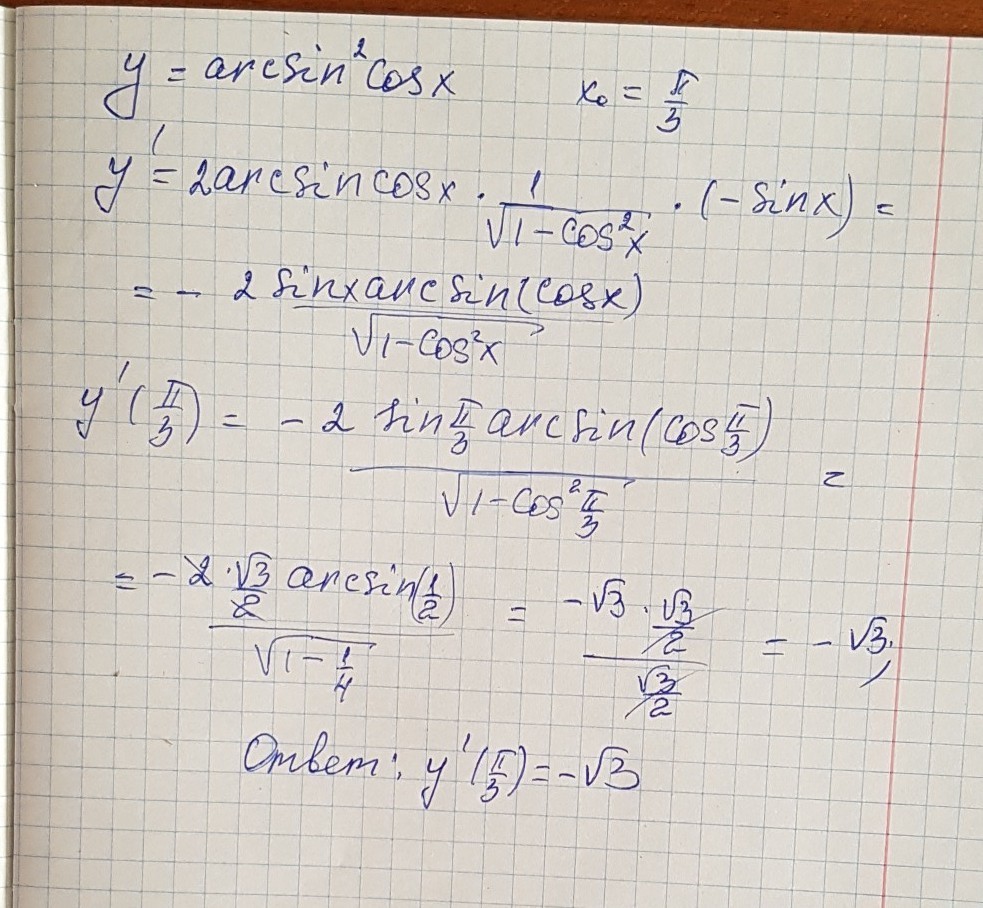 y = arcsin² cos x    x₀ = π/3
y' = 2 arcsin cos x · 1/√(1-cos²x) · (-sin x) =
= - 2 sin x arc sin(cos x)/√(1-cos²x)
y'(π/3) = -2 sin π/3 arc sin(cos π/3)/√(1-cos² π/3) =
= -2·√3/2 arcsin(1/2)/√(1-1/4) = (-√3·√3/2)/(√3/2) = -√3;
Ответ: y'(π/3) = -√3